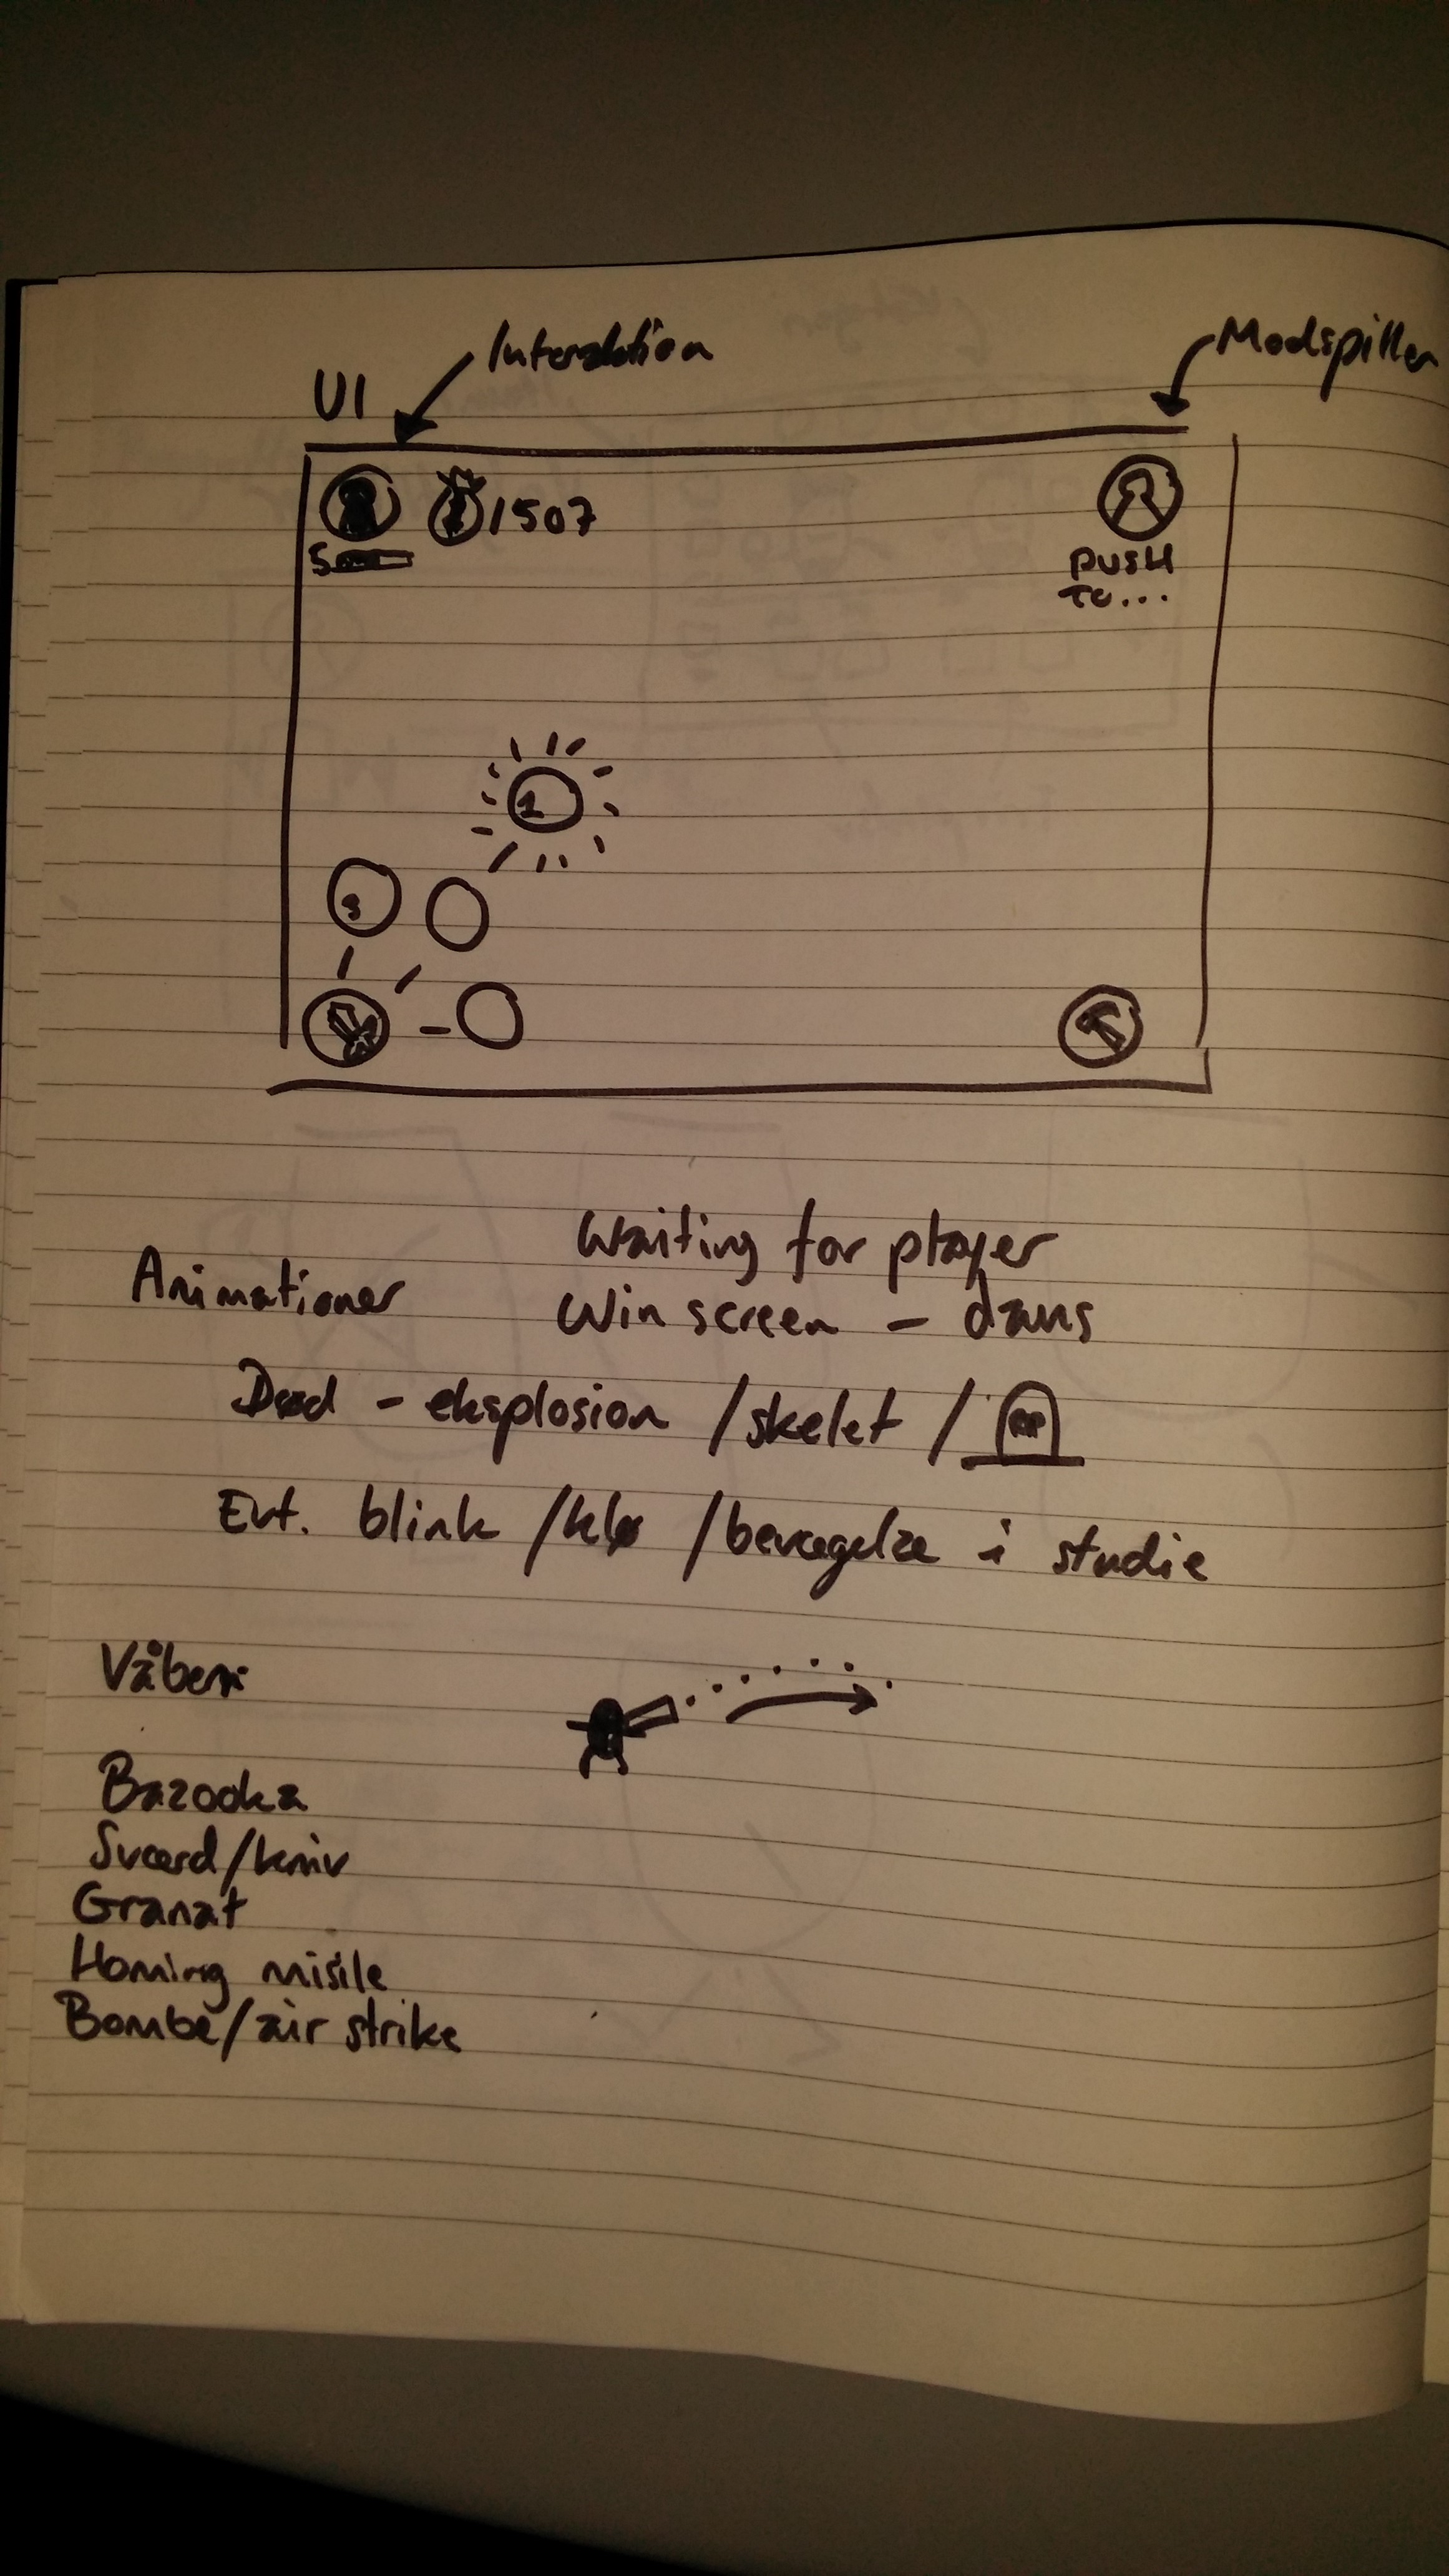 Interaktion
Modspiller
UI
1507
5
PUSH
TO...
1
3
Waiting for player
Animationer
Win screen - dans
Død - eksplosion / skelet / RIP
Evt. blink / klø / bevægelse i studie
Våben
Bazooka
Sværd/kniv
Granat
Homing misile
Bombe/air strike